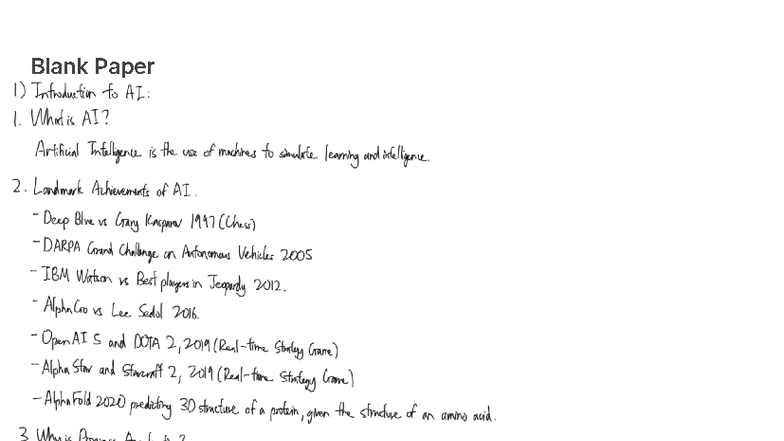 Blank Paper
1) Introduction to AI:
1. What is AI?
Artificial Intelligence is the use of machines to simulate learning and intelligence.
2. Landmark Achievements of AI.
- Deep Blue vs Gary Kasparov 1997 (Chess)
- DARPA Grand Challenge on Autonomous Vehicles 2005
- IBM Watson vs Best players in Jeopardy 2012.
- AlphaGo vs Lee Sedol 2016.
- OpenAI 5 and DOTA 2, 2019 (Real-time Strategy Game)
- Alpha Star and Starcraft 2, 2019 (Real-time Strategy Game)
- AlphaFold 2020 predicting 3D structure of a protein, given the structure of an amino acid.
3. Why is Progress